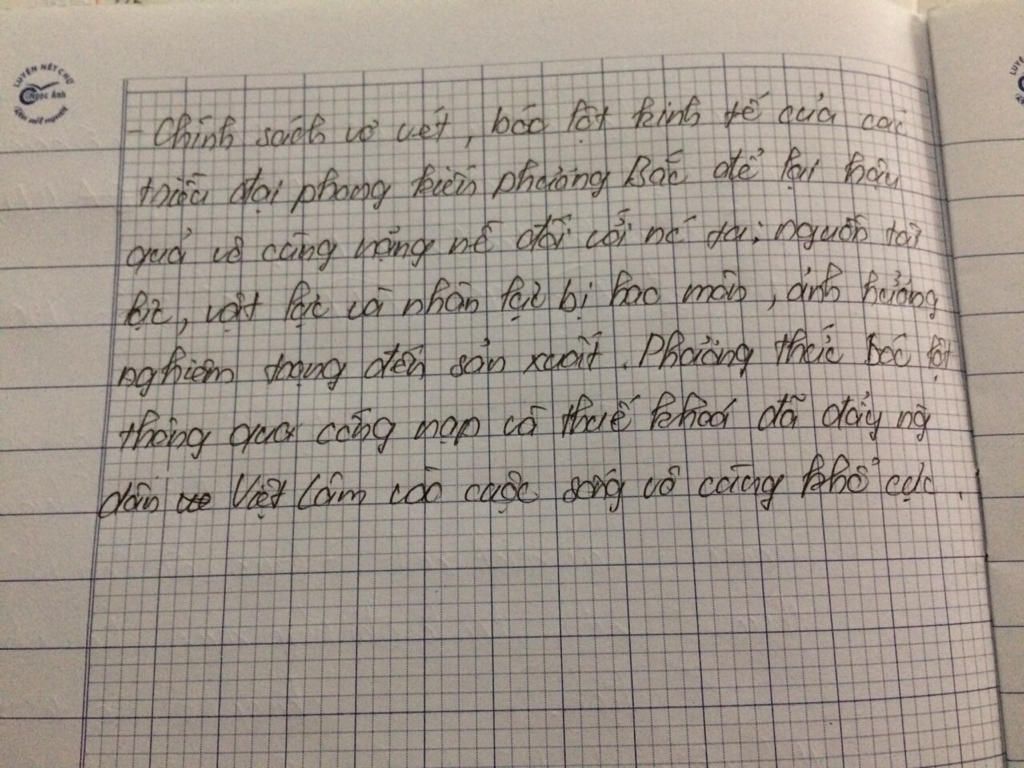 LUYỆN NÉT CHỮ
Ngọc Ánh
- Chính sách vơ vét, bóc lột kinh tế của các
triều đại phong kiến phương Bắc để lại hậu
quả vô cùng nặng nề đối với nc ta: nguồn tài
lực, vật lực và nhân lực bị hao mòn, ảnh hưởng
nghiêm trọng đến sản xuất. Phương thức bóc lột
thông qua cống nạp và thuế khoá đã đẩy ng
dân Việt Lâm vào cuộc sống vô cùng khổ cực.